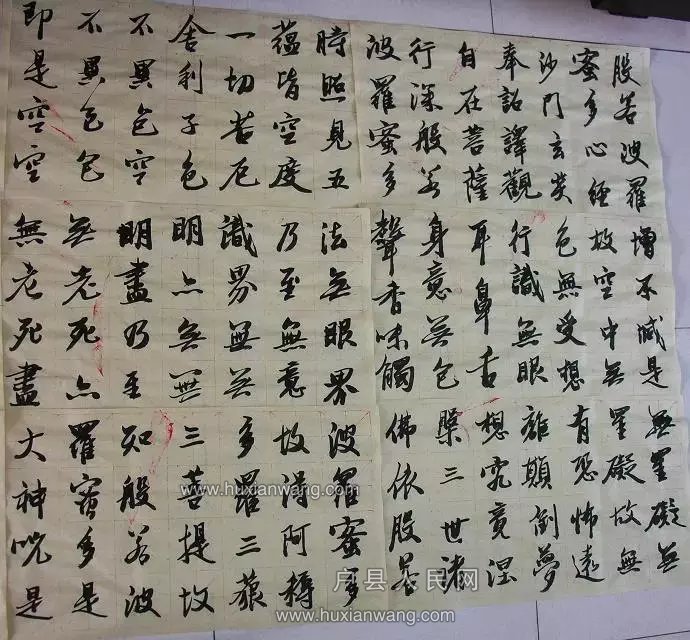 般若波羅
蜜多心經
沙門玄奘
奉詔譯觀
自在菩薩
行深般若
波羅蜜多
時照見五
蘊皆空度
一切苦厄
舍利子色
不異色空
不異色色
即是空空
增不減是
故空中無
色無受想
行識無眼
耳鼻舌
身意無色
聲香味觸
法無眼界
乃至無意
識界無無
明亦無無
明盡乃至
無老死亦
無老死盡
無罣礙無
罣礙故無
有恐怖遠
離顛倒夢
想究竟涅
槃三世諸
佛依般若
波羅蜜多
故得阿耨
多羅三藐
三菩提故
知般若波
羅蜜多是
大神咒是
www.huxianwang.com
www.huxianwang.com
户县农民网
www.huxianwang.com